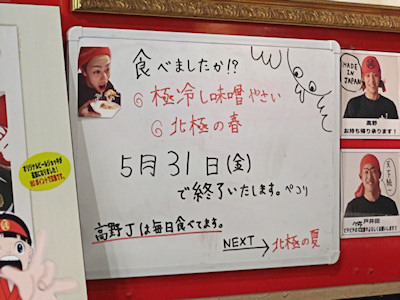 食べましたか!?
極冷し味噌やさい
北極の春
5月31日(金)
で終了いたします。ペコリ
高野Tは毎日食べてます。
NEXT → 北極の夏
MADE IN JAPAN
高野
お持ち帰り承ります!
天下統一
戸井田